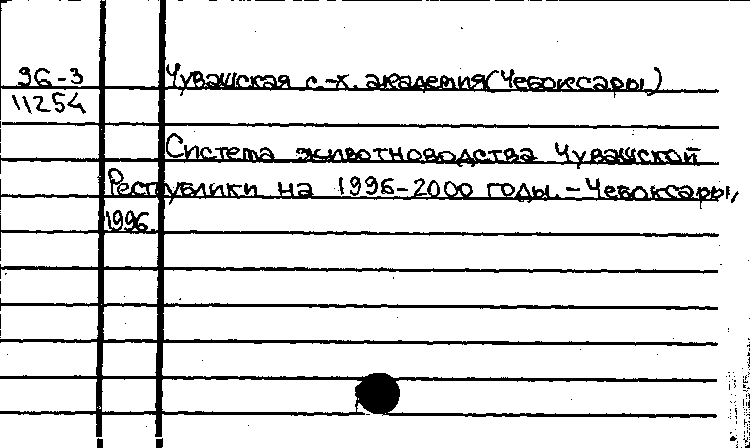 96-3 Чувашская с.-х. академия (Чебоксары)
11254
Система животноводства Чувашской
Республики на 1996-2000 годы. - Чебоксары,
1996.